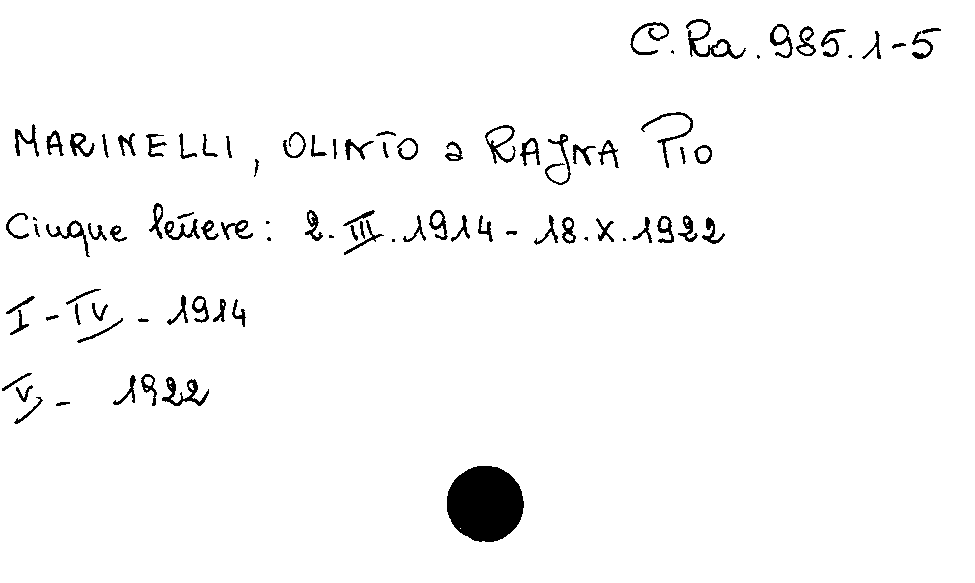 C.Ra.985.1-5
MARINELLI, OLINTO a RAJNA PIO
Cinque lettere: 2.III.1914 - 18.X.1922
I - IV - 1914
V - 1922